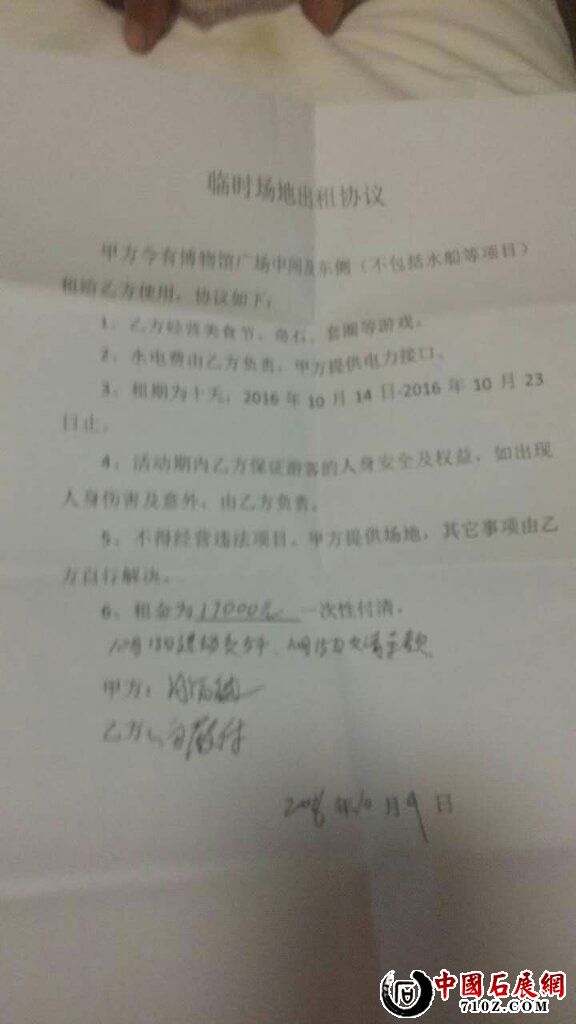 临时场地出租协议
甲方今有博物馆广场中间及东侧（不包括水船等项目）
租给乙方使用，协议如下：
1、乙方经营美食节、奇石、套圈等游戏。
2、水电费由乙方负责，甲方提供电力接口。
3、租期为十天，2016年10月14日-2016年10月23
日止。
4、活动期内乙方保证游客的人身安全及权益，如出现
人身伤害及意外，由乙方负责。
5、不得经营违法项目。甲方提供场地，其它事项由乙
方自行解决。
6、租金为17000元 一次性付清。
10月13日进场
甲方：
乙方：
2016年10月9日
中國石展網
710Z.COM